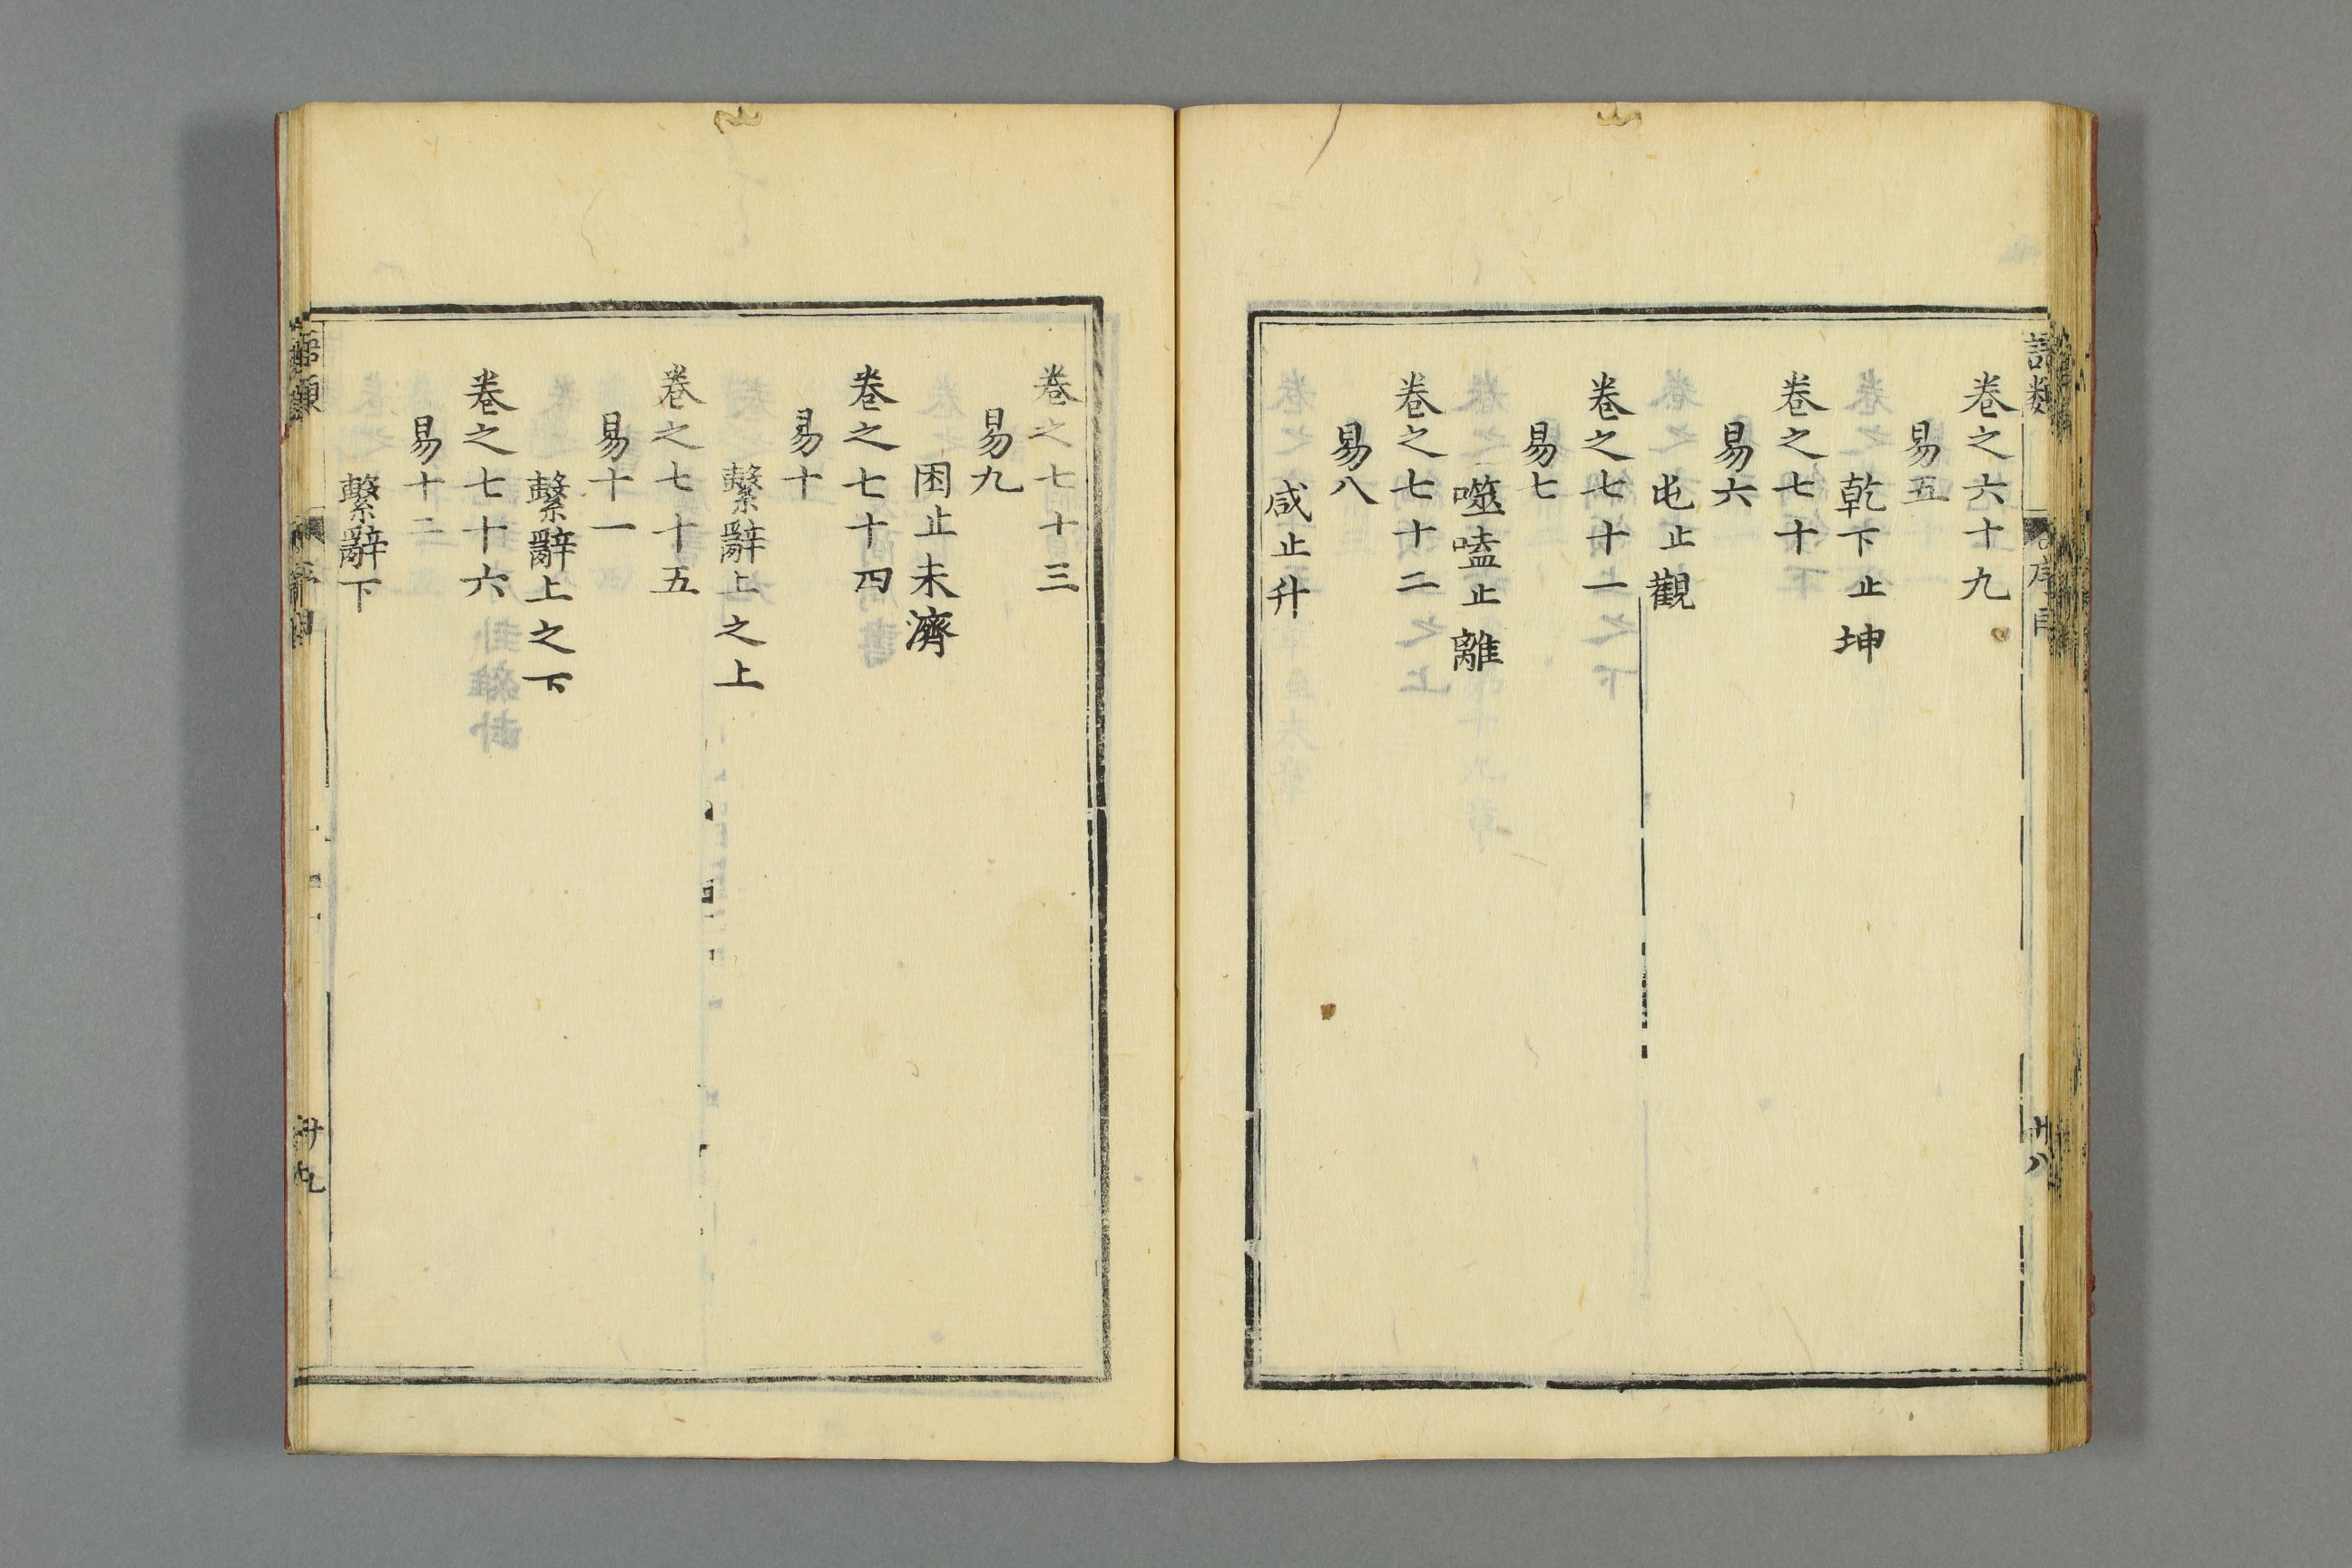 卷之六十九
易五
乾下止坤
卷之七十
易六
屯止觀
卷之七十一
易七
噬嗑止離
卷之七十二
易八
咸止升
卷之七十三
易九
困止未濟
卷之七十四
易十
繫辭上之上
卷之七十五
易十一
繫辭上之下
卷之七十六
易十二
繫辭下